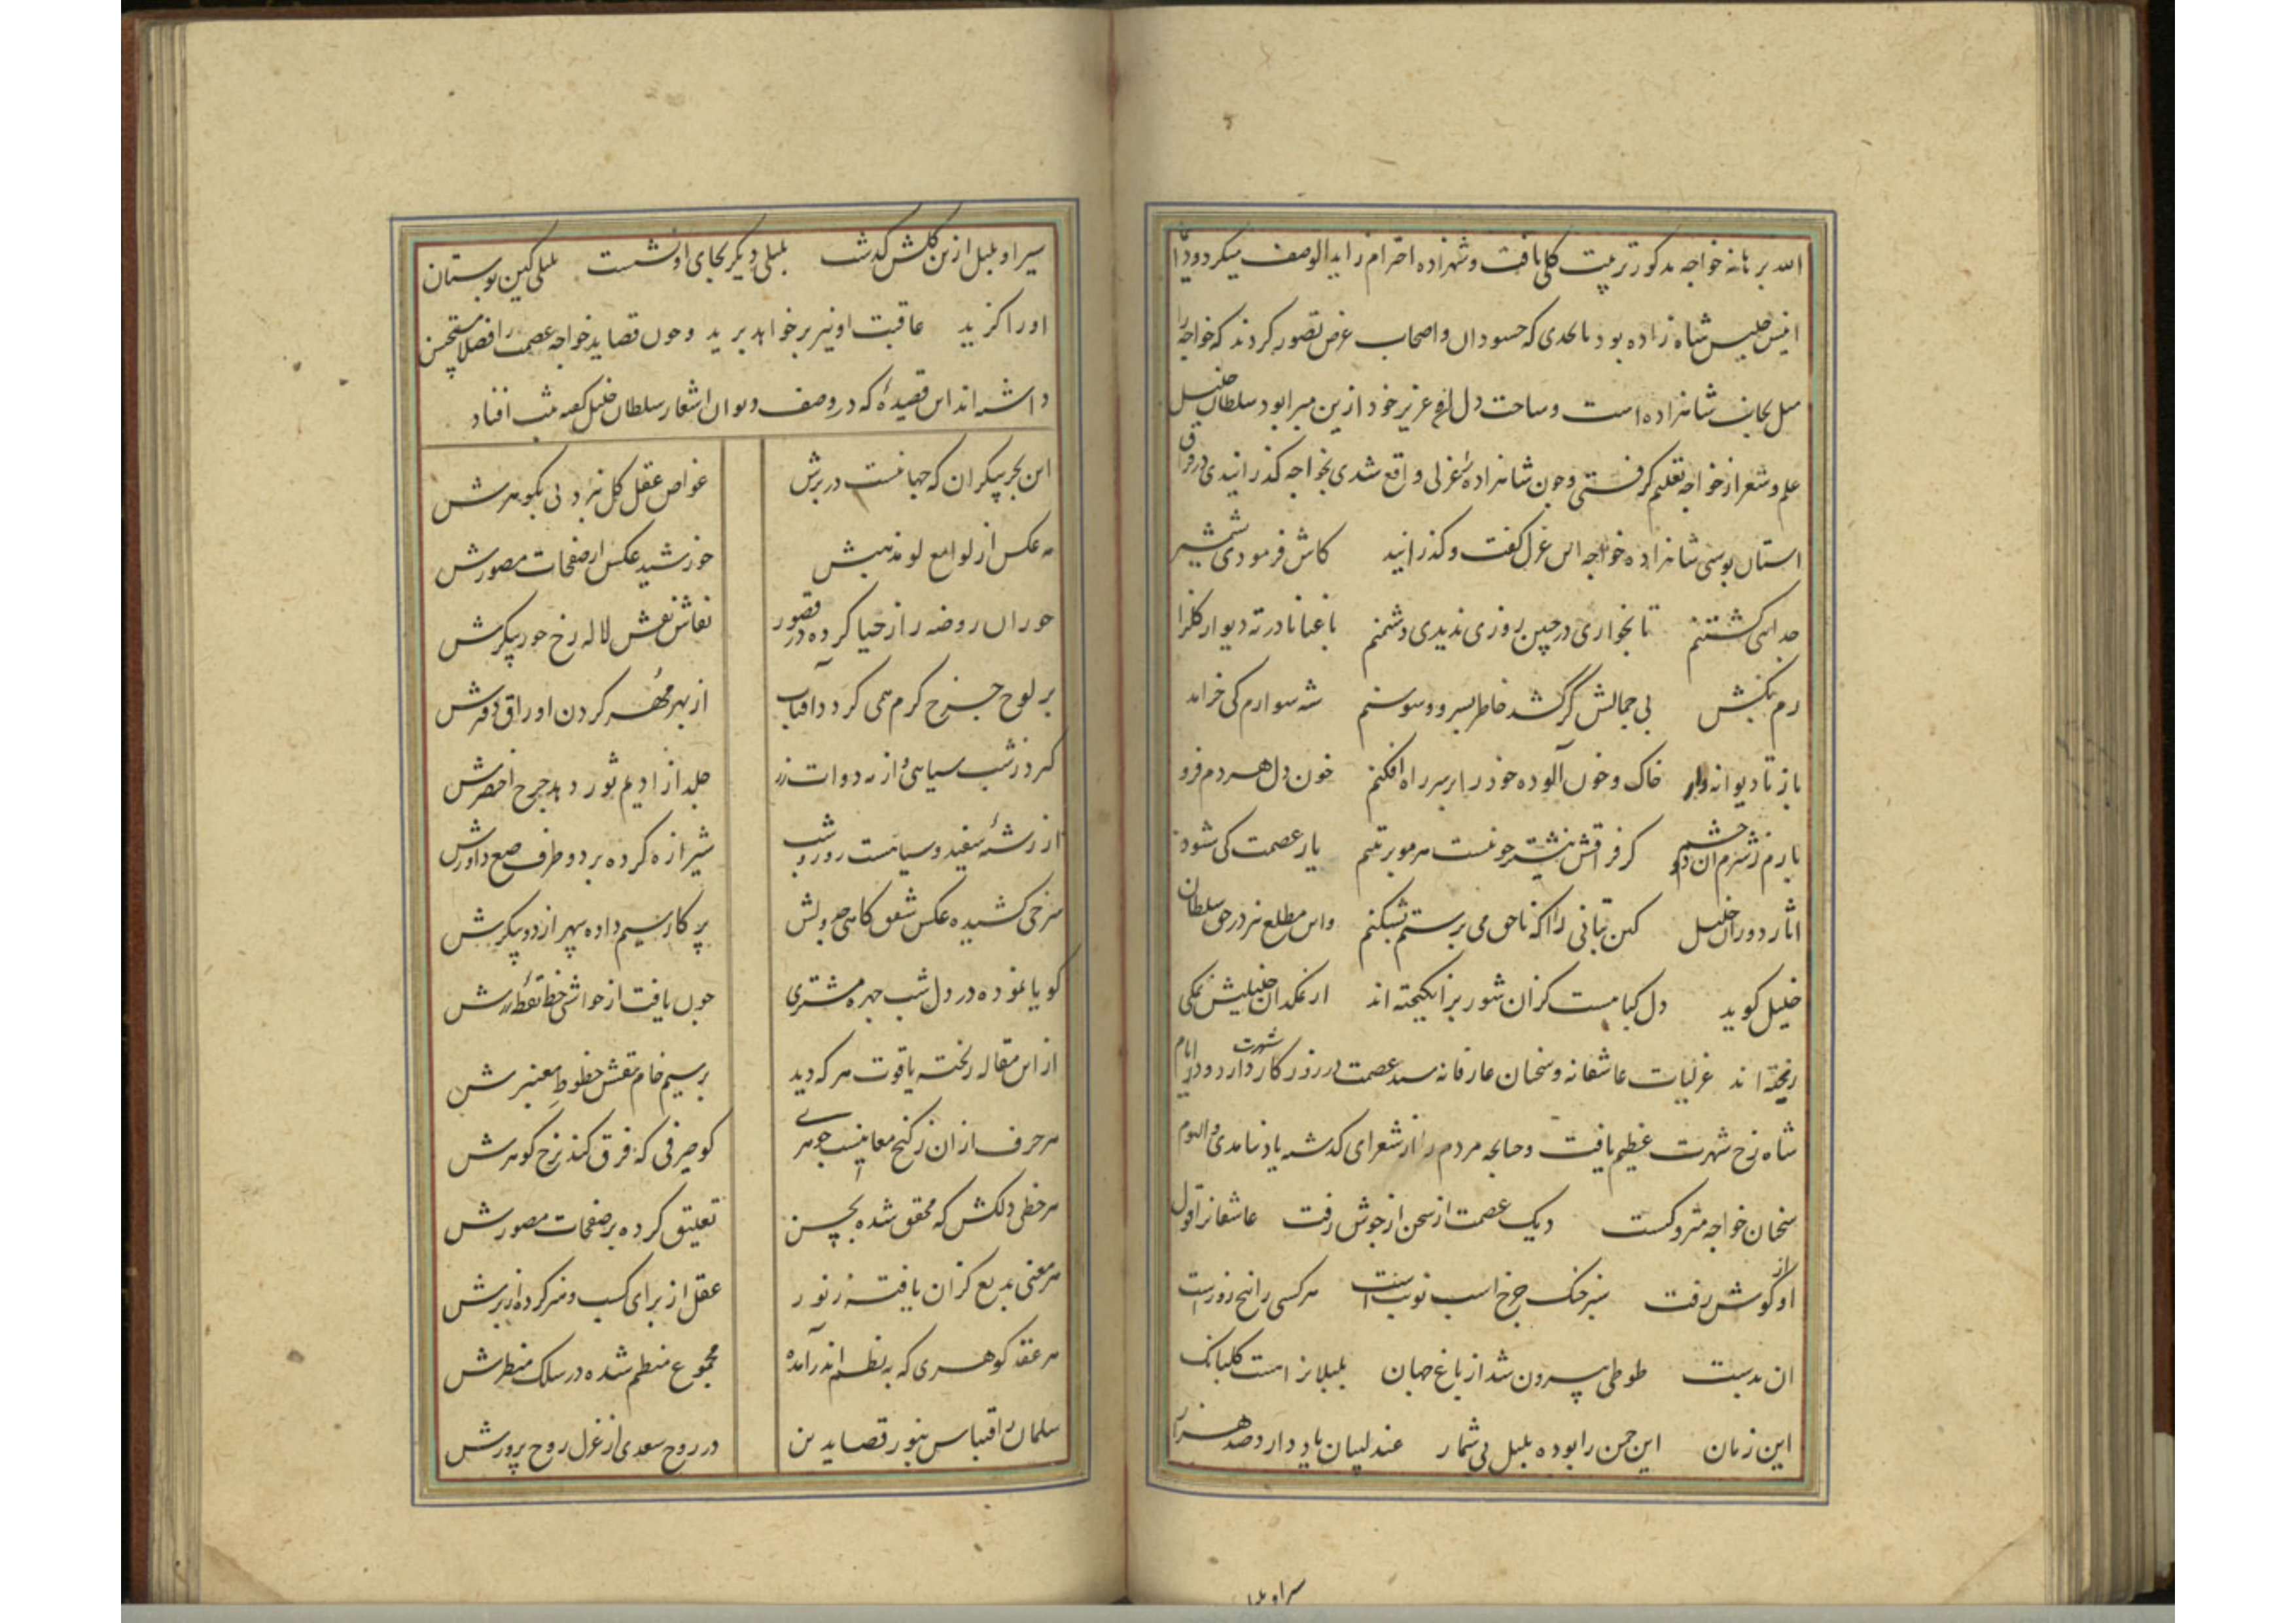 الله برهانه خواجه مذکور تربیت کلی یافت و شهزاده احترام زاید الوصف میکرد و دایما
انیس و جلیس شاه زاده بود تا بحدی که حسودان و اصحاب غرض تصور کردند که خواجه را
میل بجانب شاهزاده است و ساحت دل عزیز خود ازین مبرا بود سلطان خلیل
علم و شعر از خواجه تعلیم کرفتی و چون شاهزاده را غزلی واقع شدی بخواجه کذرانیدی در فراق
استان بوسی شاهزاده خواجه این غزل کفت و کذرانید کاش فرمودی شمشیر
جدایی کشتنم تا بخواری در چنین روزی ندیدی دشمنم باغبانا در ته دیوار کلزا
رم بکش بی جمالش کر کشد خاطر بسرو و سوسنم شه سوارم کی خرامد
باز تا دیوانه وار خاک و خون آلوده خود را بر سر راه افکنم خون دل هر دم فرو
بارم ز شرم ان دو چشم کز فراقش نیشتر خونست هر مو بر تنم یار عصمت کی شود
اثار دوران خلیل کین بتانی را که ناحق می پرستم بشکنم و این مطلع نیز در حق سلطان
خلیل کوید دل کبابیست کزان شور برانکیخته اند از نمکدان خلیلیش نمکی
ریخته اند غزلیات عاشقانه و سخنان عارفانه سید عصمت در روزکار شهرت دارد و در ایام
شاه رخ شهرت عظیم یافت و چنانچه مردم را از شعرای کذشته یاد نیامدی و الیوم
سخنان خواجه متروکست دیک عصمت از سخن از جوش رفت عاشقانرا قول
او از کوش رفت سبز خنک چرخ اسب نوبتست هر کسی را پنج روز است
ان بدست طوطی بیرون شد از باغ جهان بلبلانراست کلبانک
این زمان این چمن را بوده بلبل بی شمار عندلیبان یاد دارد صد هزار
سیر او بلبل ازین کلشن کذشت بلبلی دیکر بجای او نشست بلبلی کین بوستان
او را کزید عاقبت او نیز بر خواهد پرید و چون قصاید خواجه عصمت را فضلا مستحسن
داشته اند این قصیده که در وصف دیوان اشعار سلطان خلیل کفته ثبت افتاد
این بحر بیکران که جهانست در برش غواص عقل کل نبرد پی بکوهرش
مه عکس از لوامع لو مذهبش خورشید عکس از صفحات مصورش
حوران روضه را ز حیا کرده در قصور نقاش نقش لاله رخ حور پیکرش
بر لوح چرخ کرم همی کردد آفتاب از بهر مهره کردن اوراق دفترش
کیرد ز شب سیاهی و از مه دوات زر جلد از ادیم ثور دهد چرخ اخضرش
از رشته سفید و سیاهست روز و شب شیرازه کرده بر دو طرف صنع داورش
سرخی کشیده عکس شفق کاهی جدولش پرکار سیم داده سپهر از دو پیکرش
کویا نموده در دل شب چهره مشتری چون یافت از حواشی خط نقطه زرش
از این مقاله ریخته یاقوت هر که دید بر سیم خام نقش خطوط معنبرش
هر حرف از ان ز کنج معانیست جوهری کو صیرفی که فرق کند نرخ کوهرش
هر خطی دلکش که محقق شده بحسن تعلیق کرده بر صفحات مصورش
هر معنی بدیع کزان یافته ز نور عقل از برای کسب و هنر کرده ازبرش
هر عقد کوهری که به نظم اندر آمده مجموع منظم شده در سلک منطرش
سلمان اقتباس بنور قصایدش در روح سعدی از غزل روح پرورش
سیر او بلبل